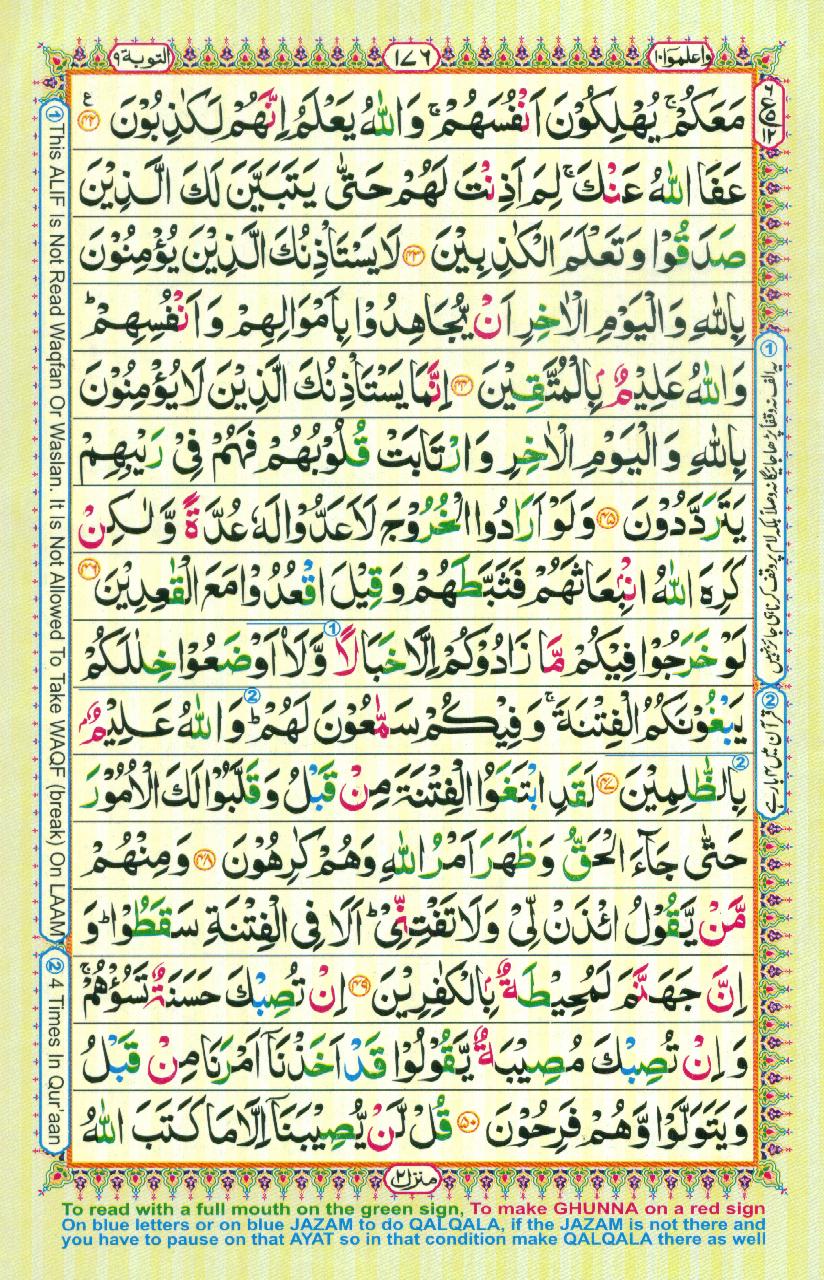 واعلموا ١٠
١٧٦
التوبة ٩
مَعَكُمْ ۚ يُهْلِكُوْنَ اَنْفُسَهُمْ ۚ وَاللّٰهُ يَعْلَمُ اِنَّهُمْ لَكٰذِبُوْنَ ﴿۴۲﴾ ع
عَفَا اللّٰهُ عَنْكَ ۚ لِمَ اَذِنْتَ لَهُمْ حَتّٰى يَتَبَيَّنَ لَكَ الَّذِيْنَ
صَدَقُوْا وَتَعْلَمَ الْكٰذِبِيْنَ ﴿۴۳﴾ لَا يَسْتَاْذِنُكَ الَّذِيْنَ يُؤْمِنُوْنَ
بِاللّٰهِ وَالْيَوْمِ الْاٰخِرِ اَنْ يُّجَاهِدُوْا بِاَمْوَالِهِمْ وَاَنْفُسِهِمْ ؕ
وَاللّٰهُ عَلِيْمٌۢ بِالْمُتَّقِيْنَ ﴿۴۴﴾ اِنَّمَا يَسْتَاْذِنُكَ الَّذِيْنَ لَا يُؤْمِنُوْنَ
بِاللّٰهِ وَالْيَوْمِ الْاٰخِرِ وَارْتَابَتْ قُلُوْبُهُمْ فَهُمْ فِىْ رَيْبِهِمْ
يَتَرَدَّدُوْنَ ﴿۴۵﴾ وَلَوْ اَرَادُوا الْخُرُوْجَ لَاَعَدُّوْا لَهٗ عُدَّةً وَّلٰكِنْ
كَرِهَ اللّٰهُ انْۢبِعَاثَهُمْ فَثَبَّطَهُمْ وَقِيْلَ اقْعُدُوْا مَعَ الْقٰعِدِيْنَ ﴿۴۶﴾
لَوْ خَرَجُوْا فِيْكُمْ مَّا زَادُوْكُمْ اِلَّا خَبَالًا وَّلَا۟اَوْضَعُوْا خِلٰلَكُمْ
يَبْغُوْنَكُمُ الْفِتْنَةَ ۚ وَفِيْكُمْ سَمّٰعُوْنَ لَهُمْ ؕ وَاللّٰهُ عَلِيْمٌۢ
بِالظّٰلِمِيْنَ ﴿۴۷﴾ لَقَدِ ابْتَغَوُا الْفِتْنَةَ مِنْ قَبْلُ وَقَلَّبُوْا لَكَ الْاُمُوْرَ
حَتّٰى جَآءَ الْحَقُّ وَظَهَرَ اَمْرُ اللّٰهِ وَهُمْ كٰرِهُوْنَ ﴿۴۸﴾ وَمِنْهُمْ
مَّنْ يَّقُوْلُ ائْذَنْ لِّىْ وَلَا تَفْتِنِّىْ ؕ اَلَا فِى الْفِتْنَةِ سَقَطُوْا ؕ وَ
اِنَّ جَهَنَّمَ لَمُحِيْطَةٌۢ بِالْكٰفِرِيْنَ ﴿۴۹﴾ اِنْ تُصِبْكَ حَسَنَةٌ تَسُؤْهُمْ ۚ
وَاِنْ تُصِبْكَ مُصِيْبَةٌ يَّقُوْلُوْا قَدْ اَخَذْنَاۤ اَمْرَنَا مِنْ قَبْلُ
وَيَتَوَلَّوْا وَّهُمْ فَرِحُوْنَ ﴿۵۰﴾ قُلْ لَّنْ يُّصِيْبَنَاۤ اِلَّا مَا كَتَبَ اللّٰهُ
① This ALIF Is Not Read Waqfan Or Waslan. It Is Not Allowed To Take WAQF (break) On LAAM
② 4 Times In Qur'aan
② قرآن میں ۴ بار ہے
منزل ٢
To read with a full mouth on the green sign, To make GHUNNA on a red sign
On blue letters or on blue JAZAM to do QALQALA, if the JAZAM is not there and
you have to pause on that AYAT so in that condition make QALQALA there as well